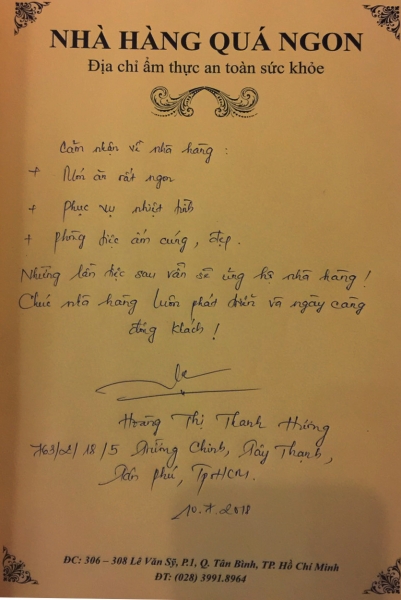 NHÀ HÀNG QUÁ NGON
Địa chỉ ẩm thực an toàn sức khỏe
Cảm nhận về nhà hàng :
+ Món ăn rất ngon
+ Phục vụ nhiệt tình
+ phòng tiệc ấm cúng, đẹp.
Những lần tiệc sau vẫn sẽ ủng hộ nhà hàng !
Chúc nhà hàng luôn phát triển và ngày càng
đông khách !
Hoàng Thị Thanh Hương
763/02/18/5 Trường Chinh, Tây Thạnh,
Tân phú, TpHCM.
10.7.2018
ĐC: 306 – 308 Lê Văn Sỹ, P.1, Q. Tân Bình, TP. Hồ Chí Minh
ĐT: (028) 3991.8964